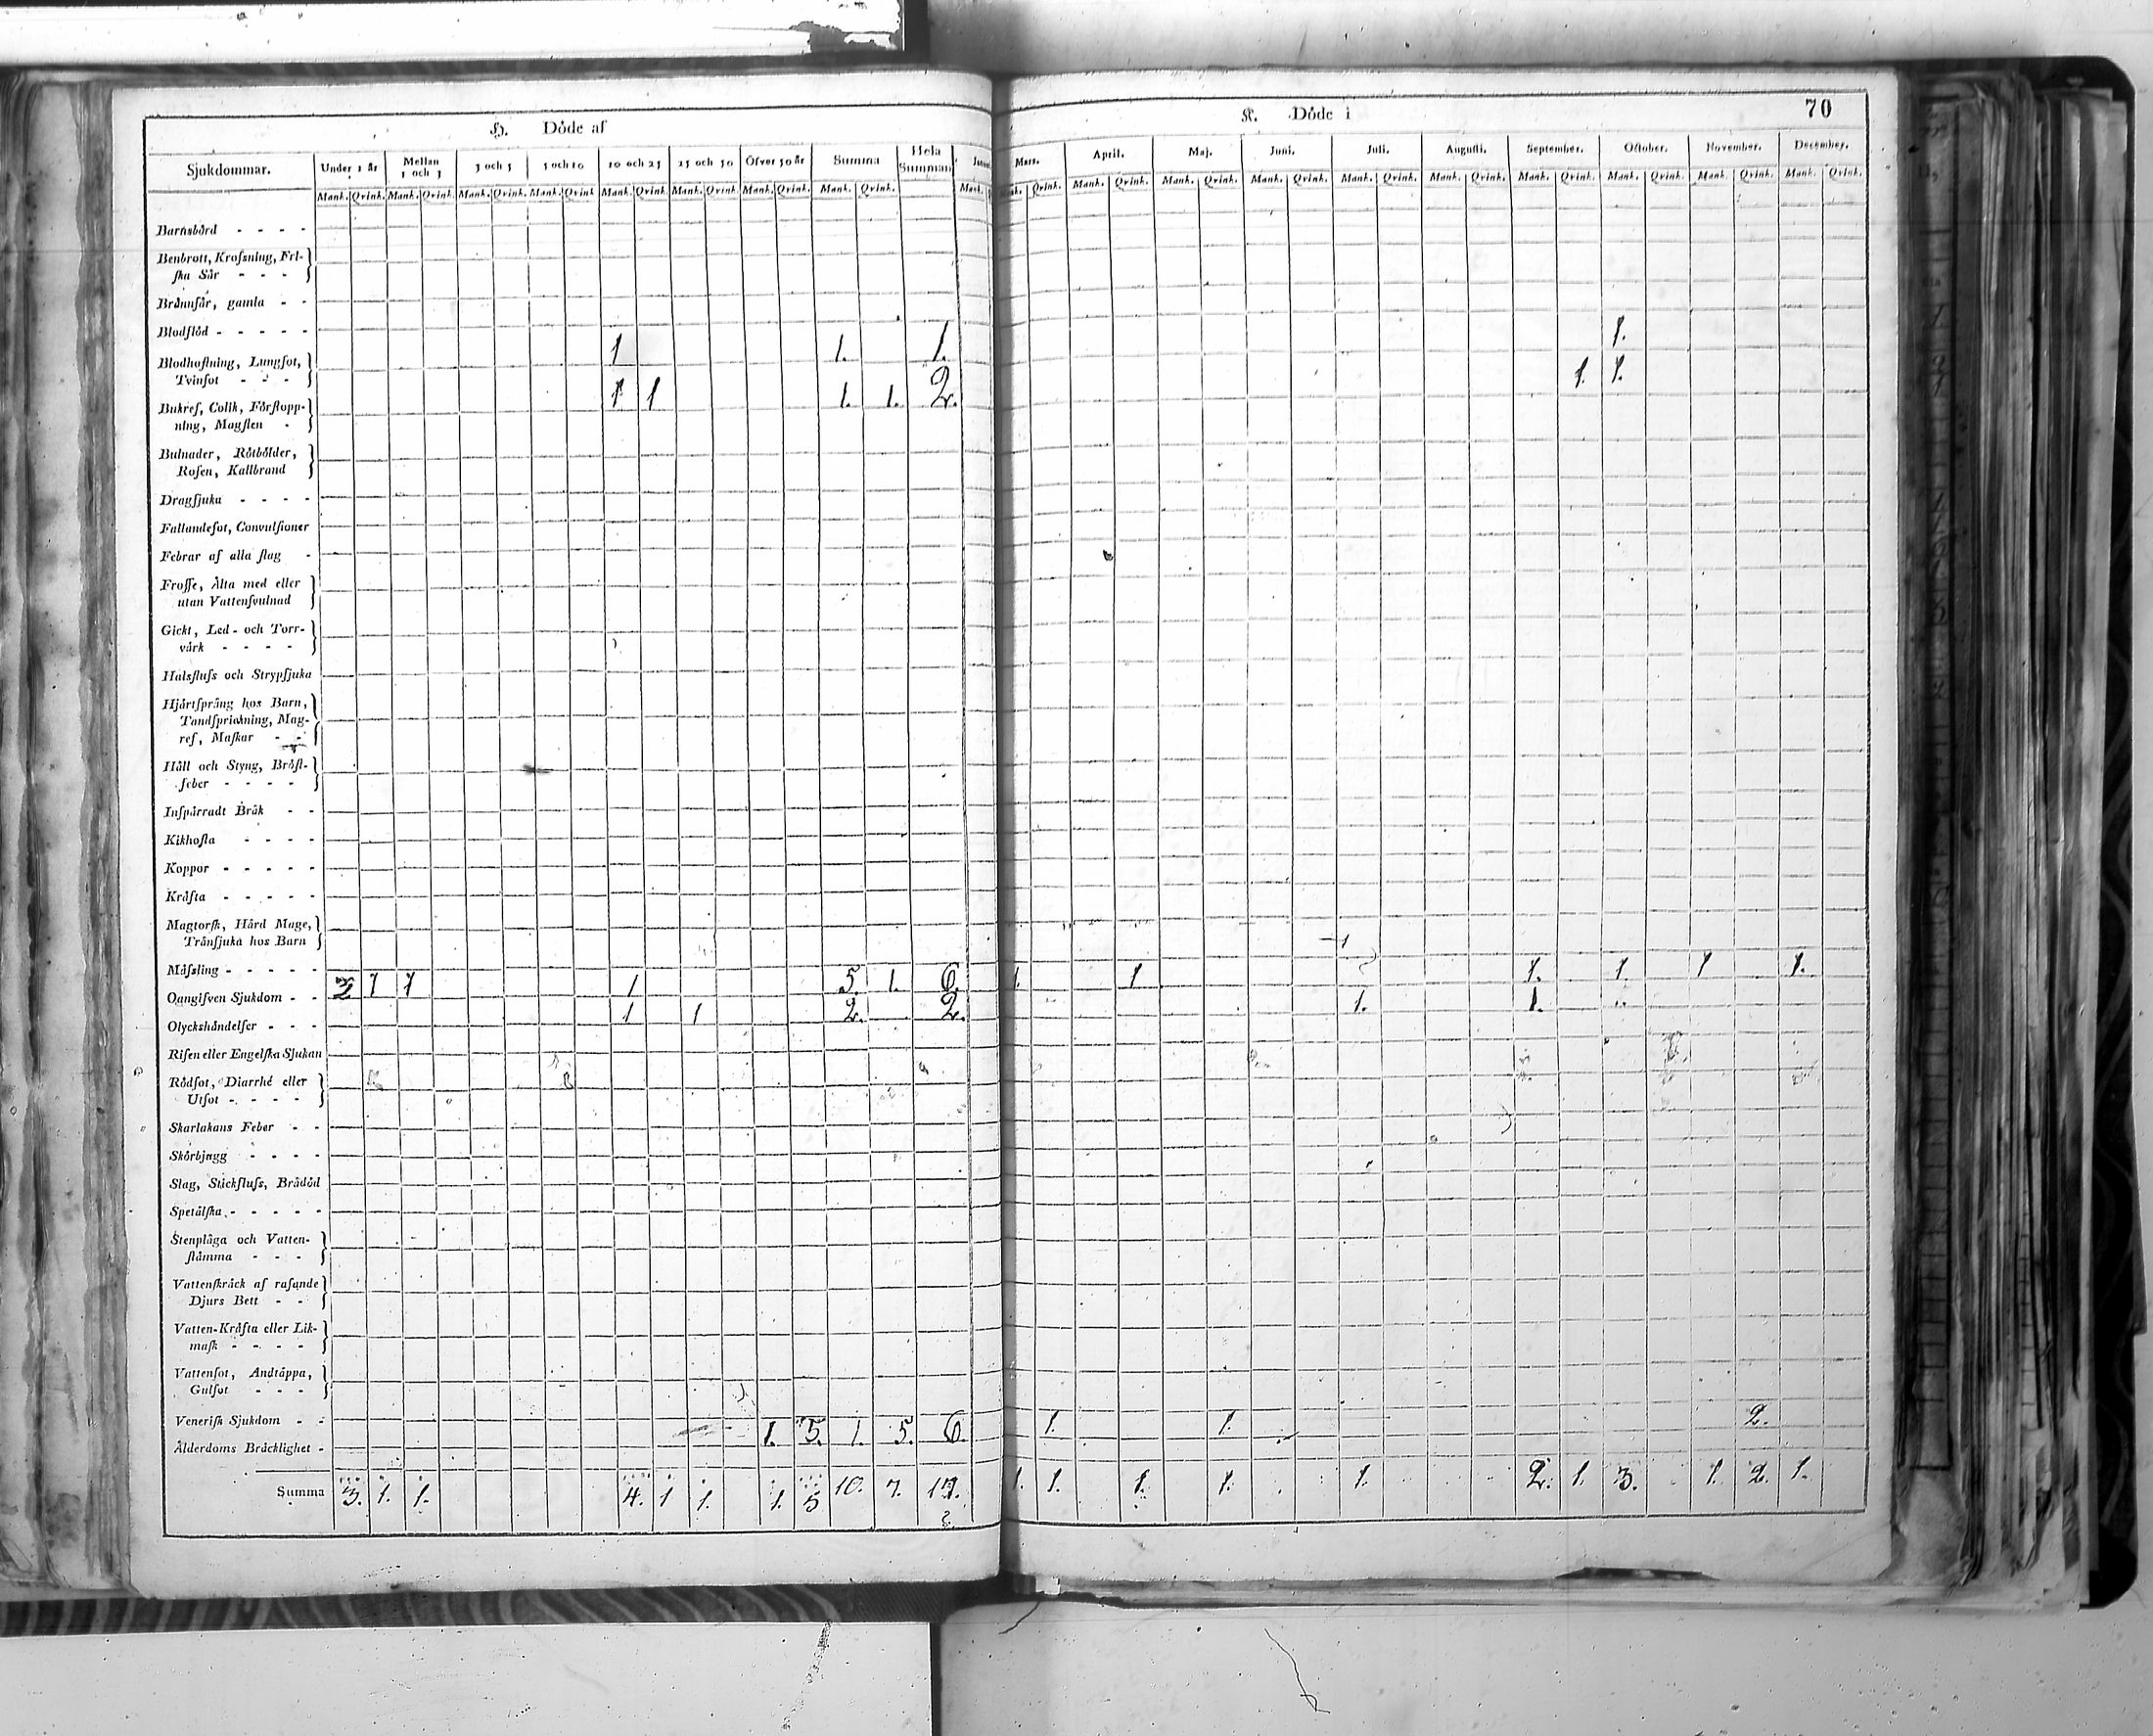 H. Döde af
K. Döde i
70
Sjukdommar. Under 1 år Mellan 1 och 3 3 och 5 5 och 10 10 och 25 25 och 50 Öfver 50 år Summa Hela Summan.
Mank. Qvink. Mank. Qvink. Mank. Qvink. Mank. Qvink Mank. Qvink. Mank. Qvink. Mank. Qvink. Mank. Qvink.
Mars. April. Maj. Juni. Juli. Augusti. September. October. November. December.
Qvink. Mank. Qvink. Mank. Qvink. Mank. Qvink. Mank. Qvink. Mank. Qvink. Mank. Qvink. Mank. Qvink. Mank. Qvink. Mank. Qvink.
Barnsbörd - - - -
Benbrott, Krofsning, Fri-
ska Sår - - -
Brännsår, gamla - -
Blodflöd - - - - -
1 1. 1. 1.
Blodhostning, Lungsot,
Tvinsot - - -
1 1 1. 1. 2. 1. 1.
Bukref, Colik, Förstopp-
ning, Magsten -
Bulnader, Rötbölder,
Rosen, Kallbrand
Dragsjuka - - - -
Fallandesot, Convulsioner
Febrar af alla slag -
Frosse, Älta med eller
utan Vattensvulnad
Gickt, Led- och Torr-
värk - - - -
Halsflufs och Strypsjuka
Hjärtsprång hos Barn,
Tandsprickning, Mag-
ref, Maskar - -
Håll och Styng, Bröst-
feber - - - -
Inspärradt Bråk - -
Kikhosta - - - -
Koppor - - - - -
Kräfta - - - - -
Magtorsk, Hård Mage,
Transjuka hos Barn
Måfsling - - - - -
2 1 1 1 5. 1. 6. 1. 1 1. 1. 1 1.
Oangifven Sjukdom - -
1 1 2. 2. 1. 1.
Olyckshändelser - - -
Risen eller Engelska Sjukan
Rödsot, Diarrhé eller
Utsot - - - -
Skarlakans Feber - -
Skörbjugg - - - -
Slag, Stickflufs, Brådöd
Spetälska - - - - -
Stenplåga och Vatten-
stämma - - -
Vattenskräck af rasande
Djurs Bett - -
Vatten-Kräfta eller Lik-
mask - - - -
Vattensot, Andtäppa,
Gulsot - - -
Venerisk Sjukdom - -
1. 5. 1. 5. 6. 1. 1. 2.
Ålderdoms Bräcklighet -
Summa 3. 1. 1. 4. 1 1. 1. 5 10. 7. 17. 1. 1. 1. 1. 1. 2. 1. 3. 1. 2. 1.